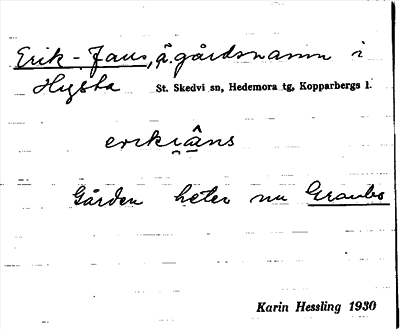 Erik-Jans, å. gårdsnamn i
Hysta St. Skedvi sn, Hedemora tg, Kopparbergs l.
erikiâns
Gården heter nu Granbo
Karin Hessling 1930